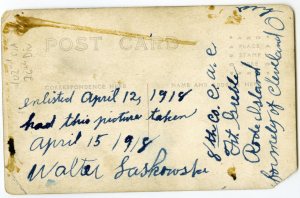 POST CARD
CORRESPONDENCE HERE
NAME AND
PLACE
STAMP
HERE
enlisted April 12, 1918
had this picture taken
April 15 1918
Walter Laskowski
8th Co. C. a. C.
Fort Greble
Rode Island
formely of Cleveland O